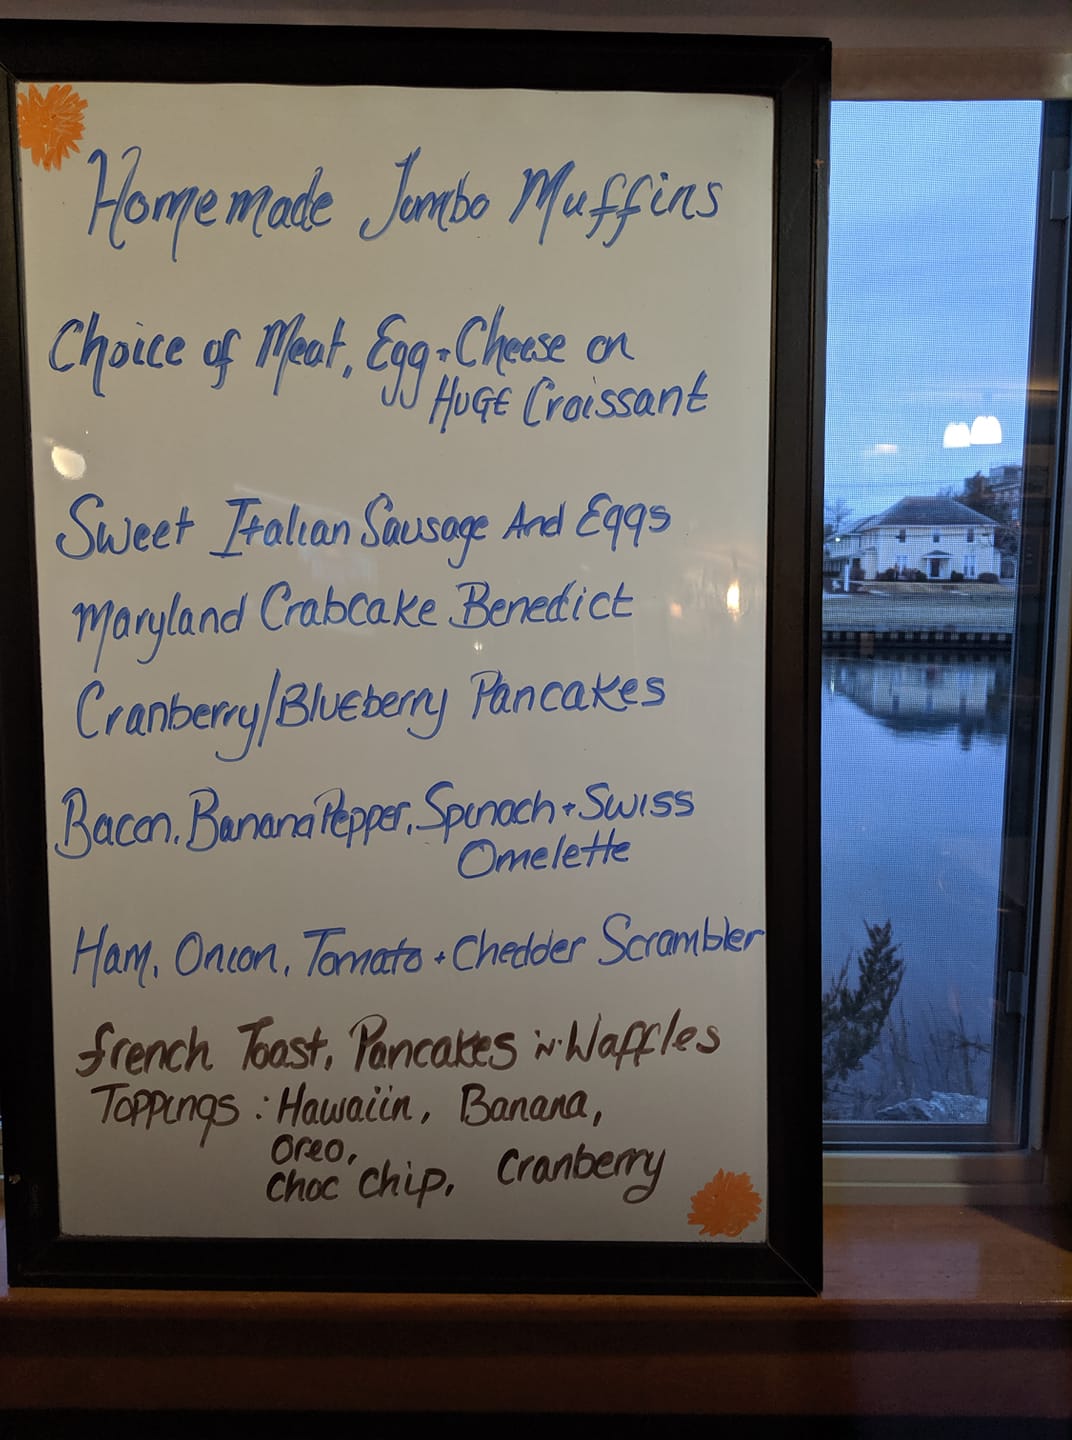 Homemade Jumbo Muffins
Choice of Meat, Egg + Cheese on
HUGE Croissant
Sweet Italian Sausage And Eggs
Maryland Crabcake Benedict
Cranberry/Blueberry Pancakes
Bacon, Banana Pepper, Spinach + Swiss
Omelette
Ham, Onion, Tomato + Chedder Scrambler
French Toast, Pancakes 'N' Waffles
Toppings : Hawaiin, Banana,
Oreo,
Choc Chip, Cranberry